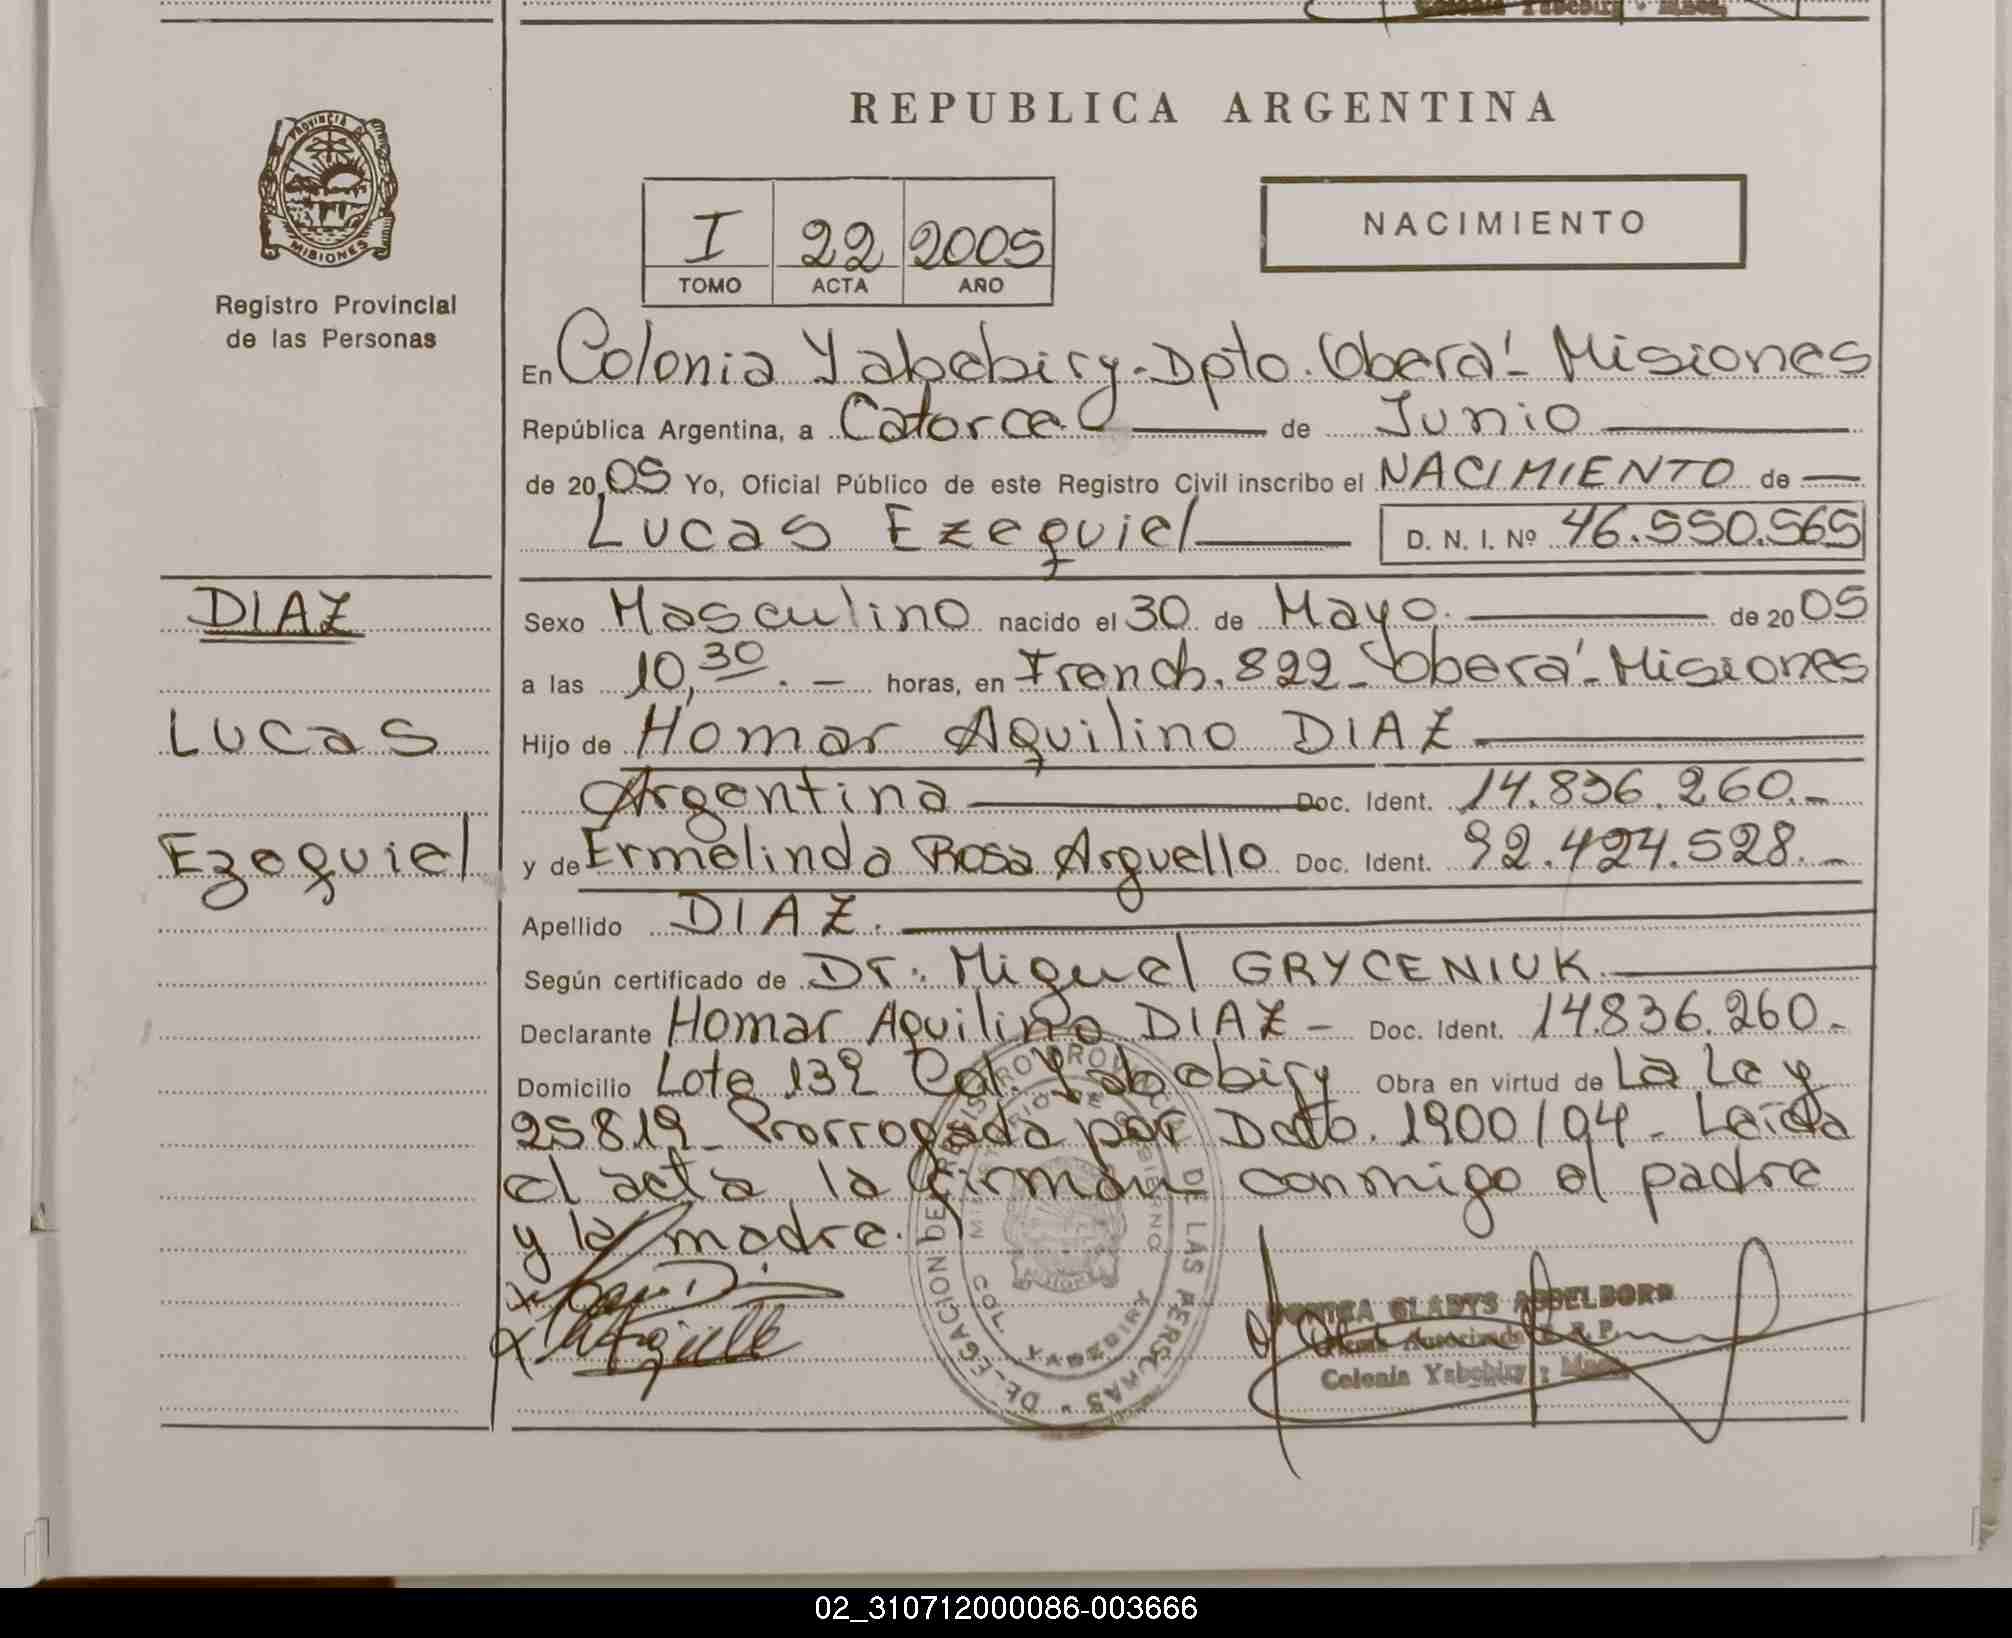 PROVINCIA DE
MISIONES
Registro Provincial
de las Personas
DIAZ
Lucas
Ezequiel
REPUBLICA ARGENTINA
I 22 2005
TOMO ACTA AÑO
NACIMIENTO
En Colonia Yabebiry - Dpto. Oberá - Misiones
República Argentina, a Catorce de Junio
de 2005 Yo, Oficial Público de este Registro Civil inscribo el NACIMIENTO de
Lucas Ezequiel D. N. I. Nº 46.550.565
Sexo Masculino nacido el 30 de Mayo. de 2005
a las 10,30.- horas, en French. 822 - Oberá - Misiones
Hijo de Homar Aquilino DIAZ
Argentina Doc. Ident. 14.836.260.-
y de Ermelinda Rosa Arguello Doc. Ident. 92.424.528.-
Apellido DIAZ.
Según certificado de Dr. Miguel GRYCENIUK
Declarante Homar Aquilino DIAZ - Doc. Ident. 14.836.260.-
Domicilio Lote 132 Col. Yabebiry Obra en virtud de La Ley
25819 - Prorrogada por Dcto. 1900/04 - Leída
el acta, la firman conmigo el padre
y la madre.
DELEGACION DE REGISTRO PROVINCIAL DE LAS PERSONAS
MINISTERIO DE GOBIERNO
COL. YABEBIRY
GLADYS ASSELBORD
Colonia Yabebiry - Mnes.
02_310712000086-003666